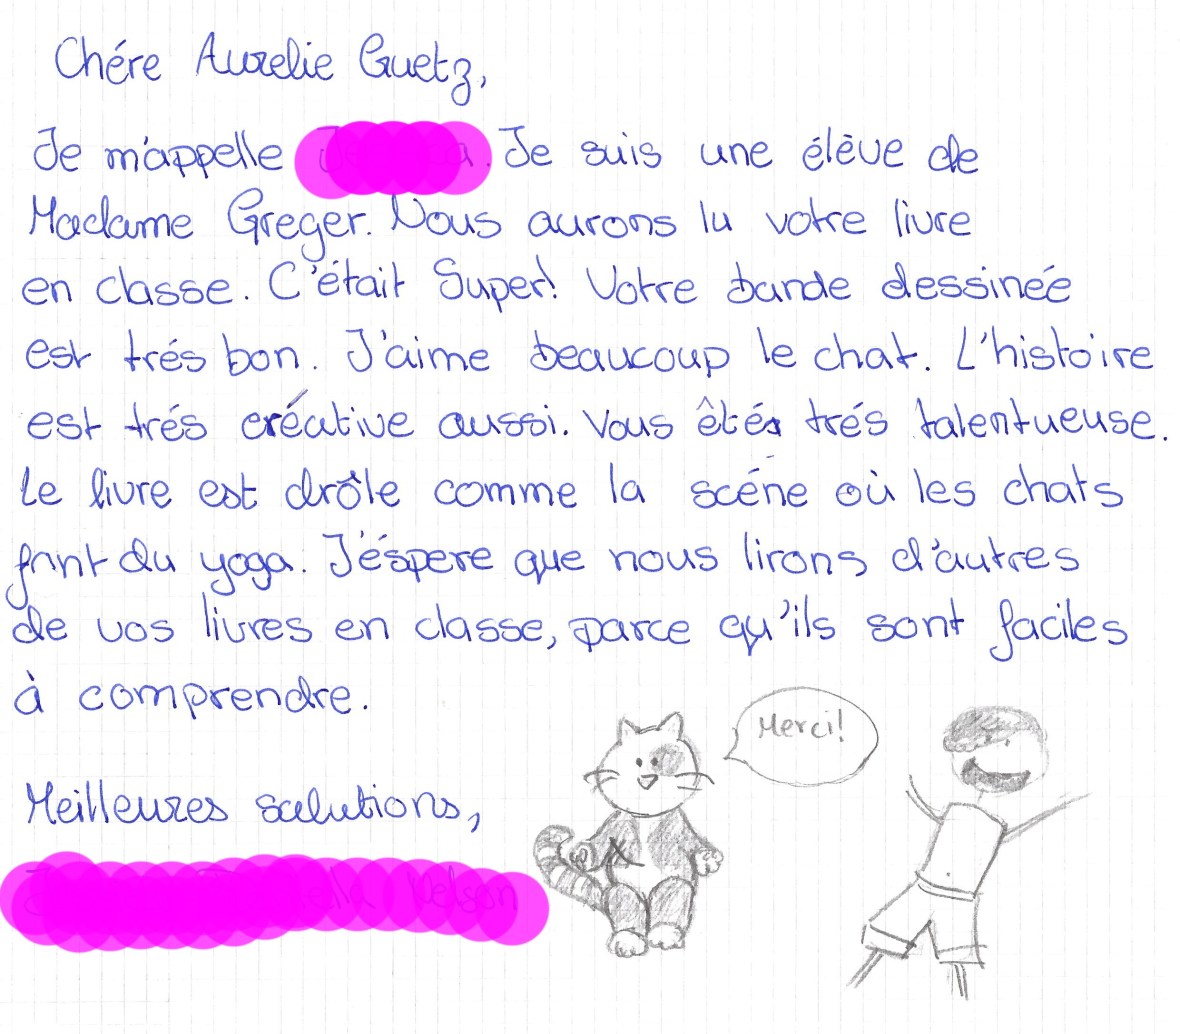 Chére Aurelie Guetz,
Je m'appelle Je suis une élève de
Madame Greger. Nous aurons lu votre livre
en classe. C'était Super! Votre bande dessineé
est trés bon. J'aime beaucoup le chat. L'histoire
est trés créative aussi. Vous êtés trés talentueuse.
Le livre est drôle comme la scéne où les chats
font du yoga. J'éspere que nous lirons d'autres
de vos livres en classe, parce qu'ils sont faciles
à comprendre.
Merci!
Meilleures salutions,